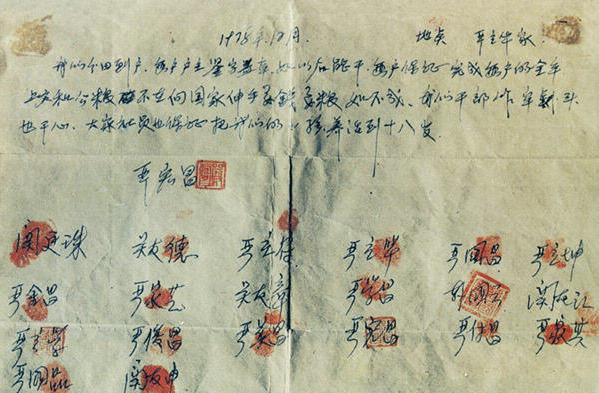 1978年12月. 地点 严立华家
我们分田到户,每户户主签字盖章,如以后能干,每户保证完成每户的全年
上交和公粮 不在向国家伸手要钱要粮 如不成,我们干部作牢刹头
也干心,大家社员也保证把我们的小孩养活到十八岁.
严宏昌
关廷珠 关友德 严立符 严立华 严国昌 严立坤
严金昌 严家芝 关友章 严学昌 韩国云 关友江
严立学 严俊昌 严美昌 严宏昌 严付昌 严家其
严国品 关友申